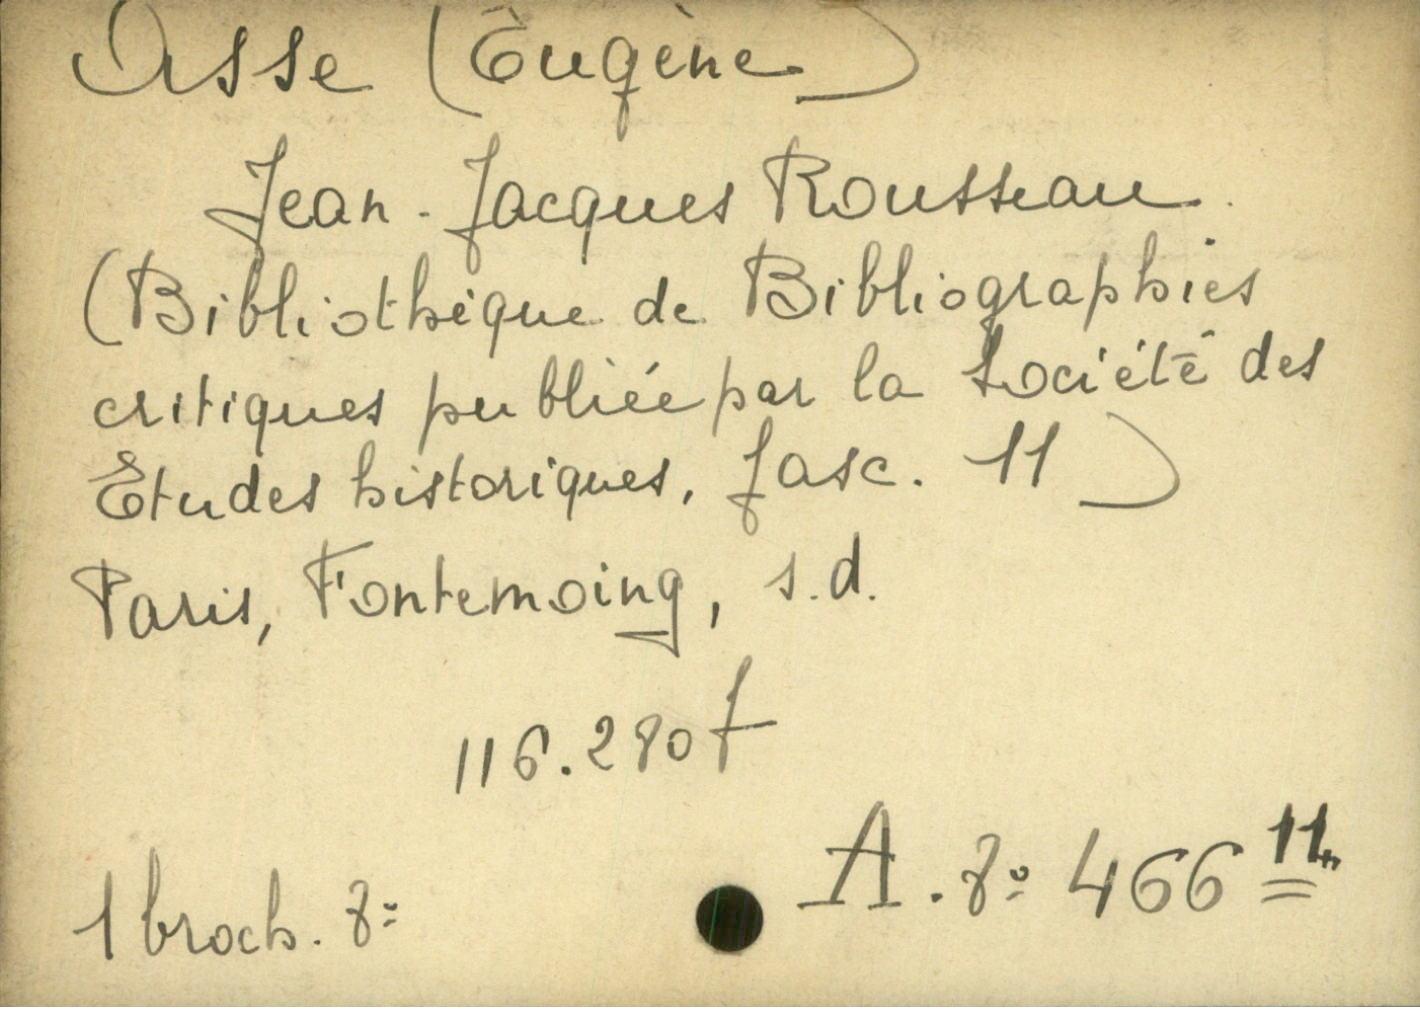 Asse (Eugène)
Jean-Jacques Rousseau.
(Bibliothèque de Bibliographies
critiques publiée par la Société des
Études historiques, fasc. 11)
Paris, Fontemoing, s.d.
116.290 f
1 broch. 8º
A. 8º 466 11